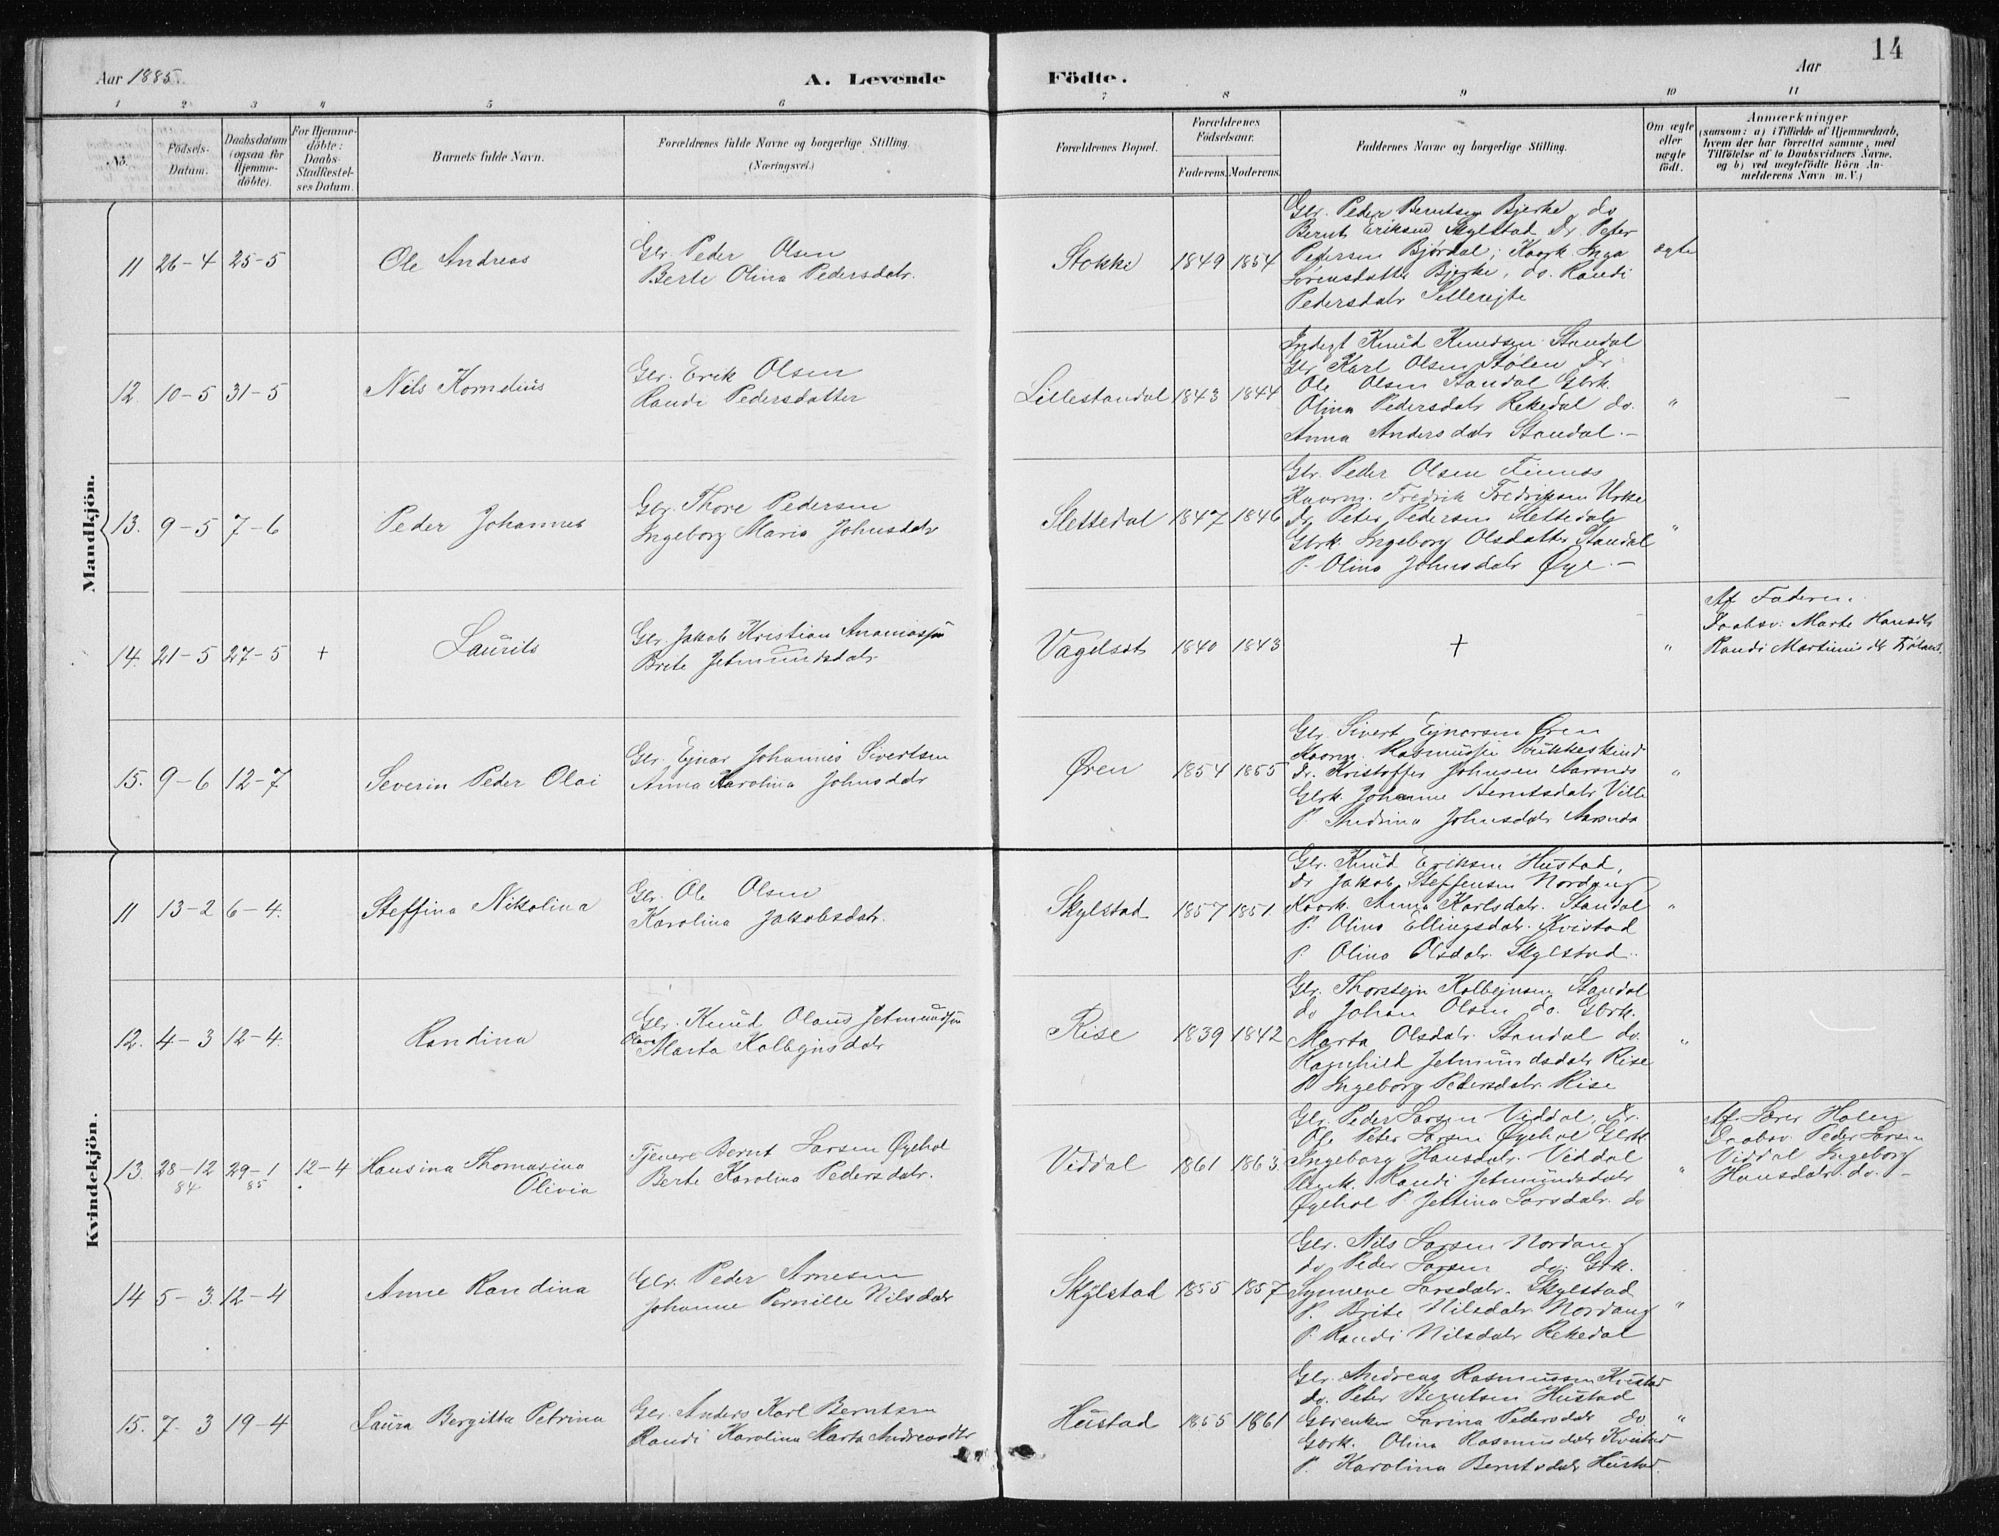 Aar 1885.
A. Levende
Födte.
Aar
14
1 2 3 4 5 6 7 8 9 10 11
No.
Födsels-
Datum.
Daabsdatum
(ogsaa for
Hjemme-
döbte).
For Hjemme-
döbte:
Daabs-
Stadfæstel-
ses Datum.
Barnets fulde Navn.
Forældrenes fulde Navne og borgerlige Stilling.
(Næringsvei.)
Forældrenes Bopæl.
Forældrenes
Födselsaar.
Faderens. Moderens.
Faddernes Navne og borgerlige Stilling.
Om ægte
eller
uægte
födt.
Anmærkninger
(saasom: a) i Tilfælde af Hjemmedaab,
hvem der har forrettet samme, med
Tilföielse af to Daabsvidners Navne,
og b) ved uægtefödte Börn An-
melderens Navn m. V.)
Mandkjön.
11 26-4 25-5
Ole Andreas
Gbr. Peder Olsen
Berte Olina Pedersdatr.
Stokke 1849 1854
Gbr. Peder Berntsen Bjerke, do
Bernt Eriksen Skylstad Dr. Peter
Pedersen Bjørdal; Kaark Inga
Sørensdatter Bjerke, do. Randi
Pedersdatr
ægte
12 10-5 31-5
Nils Kornelius
Gbr. Erik Olsen
Randi Pedersdatter
Lillestandal 1843 1844
Knud Knudsen Standal
Gbr Karl Olsen Stølen Dr.
Ole Olsen Standal Gbrk.
Olina Pedersdatr Rekedal do.
Anna Andersdatr Standal. -
"
13. 9-5 7-6
Peder Johannes
Gbr. Thore Pedersen
Ingeborg Maria Johnsdatr
Slettedal 1847 1846
Gbr. Peder Olsen Finnes
Kaarm. Fredrik Fredriksen Urke
Dr. Peter Pedersen Slettedal
Gbrk. Ingeborg Olsdatter Standal
P. Olina Johnsdatr Øye. -
"
14. 21-5 27-5 +
Laurits
Gbr. Jakob Kristian Ananiassen
Brite Jetmundsdatr
1840 1843
+
"
Af Faderen.
Daabsv. Marte Hansdtr
Randi
15. 9-6 12-7
Severin Peder Olai
Gbr. Ejnar Johannes Sivertsen
Anna Karolina Johnsdatr
Øren 1854 1855
Gbr Sivert Ejnarsen Øren
Kaarm. Rasmus
Dr. Kristoffer Johnsen Aarsnes
Gbrk. Johanne Berntsdatr Ville
P. Andrina Johnsdatr Aarsnes
"
Kvindekjön.
11 13-2 6-4.
Steffina Nikolina
Gbr. Ole Olsen
Karolina Jakobsdatr.
Skylstad 1857 1851
Gbr. Knud Eriksen Hustad,
Dr Jakob Steffensen Nordang
Kaark. Anna Karlsdatr. Standal
P. Olina Ellingsdatr. Kvistad
P. Olina Olsdatr. Skylstad.
"
12. 4-3 12-4.
Randina
Gbr. Knud Olaus Jetmundsen
Marta Kolbejnsdatr
Rise 1839 1842
Gbr. Thorstejn Kolbejnsen Standal
do Johan Olsen do. Gbrk.
Marta Olsdatr. Standal do.
Ragnhild Jetmundsdatr Rise
P. Ingeborg Pedersdatr. Rise
"
13. 28-12 84 29-1 85 12-4
Hansina Thomasina
Olivia
Tjener Bernt Larsen Øyehol
Berte Karolina Pedersdatr.
Viddal 1861 1863.
Gbr. Peder Larsen Viddal, Dr.
Ole Peter Larsen Øyehol Gbrk
Ingeborg Hansdatr. Viddal
Randi Jetmundsdatr
Øyehol P. Jettina Larsdatr. do
"
Af Lærer Holen
Daabsv. Peder Larsen
Viddal Ingeborg
Hansdatr. do. -
14 5-3. 12-4
Anne Randina
Gbr. Peder Arnesen
Johanne Pernille Nilsdatr
Skylstad 1855 1857
Gbr. Nils Larsen Nordang
do Peder Larsen do; Gbrk.
Synneve Larsdatr. Skylstad
P. Brite Nilsdatr. Nordang
P. Randi Nilsdatr Rekedal
"
15. 7-3 19-4
Laura Bergitta Petrina
Gbr. Anders Karl Berntsen
Randi Karolina Marta Andreasdtr
Hustad 1855 1861
Gbr. Andreas Rasmussen Kvistad
do. Peter Berntsen Hustad
Gbrenken Larina Pedersdatr do
Gbrk. Olina Rasmusdatr Kvistad
P. Karolina Berntsdatr Hustad.
"